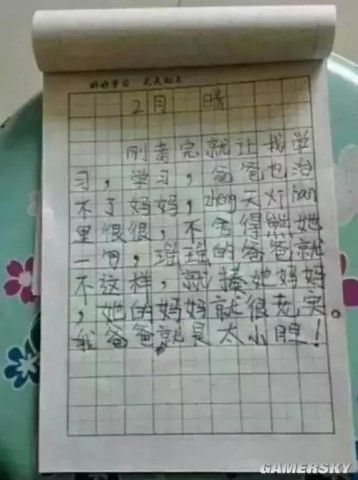 好好学习 天天向上
2月 晴
刚考完就让我学
习，学习，爸爸也治
不了妈妈，天han
里很很，不舍得熊她
一句，瑶瑶的爸爸就
不这样，就揍她妈妈
，她的妈妈就很老实
我爸爸就是太小胆！
GAMERSKY